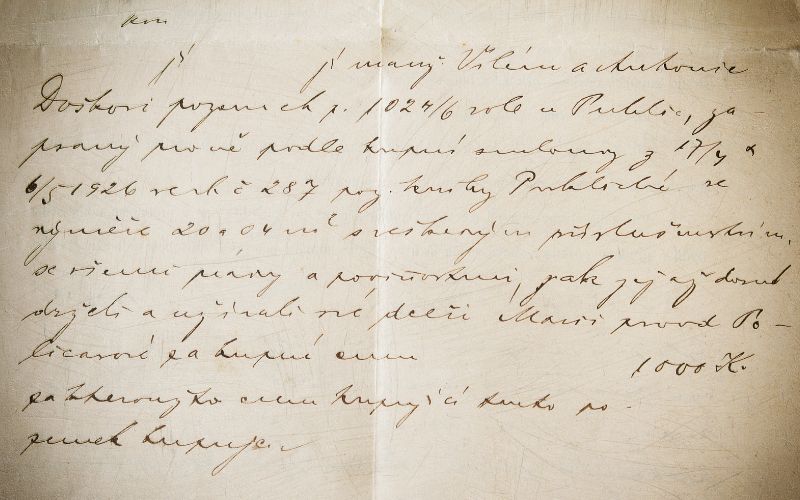 jí
jí manž. Vilém a Antonie
Doškovi pozemek p. 1024/6 role u Puklic, za-
psaný pro ně podle kupní smlouvy z 17/4 a
6/5 1926 ve vl. č 287 poz. knihy Puklické se
výměře 20 a 04 m² s veškerým příslušenstvím,
se všemi právy a povinnostmi, jak jej až dosud
drželi a užívali své dceři Marii provd Po-
licarové za kupní cenu
1000 K.
za kteroužto cenu kupující tento po-
zemek kupuje.